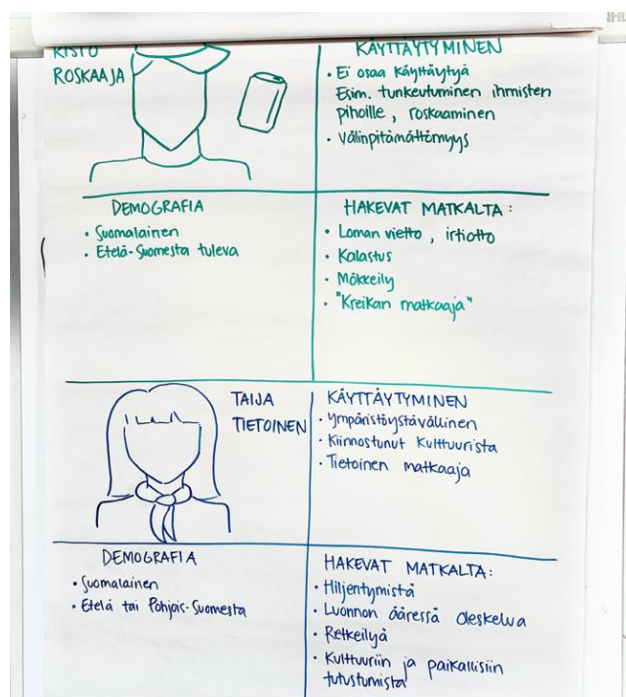 RISTO
ROSKAAJA
KÄYTTÄYTYMINEN
• Ei osaa käyttäytyä
Esim. tunkeutuminen ihmisten
pihoille, roskaaminen
• Välinpitämättömyys
DEMOGRAFIA
• Suomalainen
• Etelä-Suomesta tuleva
HAKEVAT MATKALTA:
• Loman vietto, irtiotto
• Kalastus
• Mökkeily
• "Kreikan matkaaja"
TAIJA
TIETOINEN
KÄYTTÄYTYMINEN
• Ympäristöystävällinen
• Kiinnostunut kulttuurista
• Tietoinen matkaaja
DEMOGRAFIA
• Suomalainen
• Etelä tai Pohjois-Suomesta
HAKEVAT MATKALTA:
• Hiljentymistä
• Luonnon ääressä oleskelua
• Retkeilyä
• Kulttuuriin ja paikallisiin
tutustumista